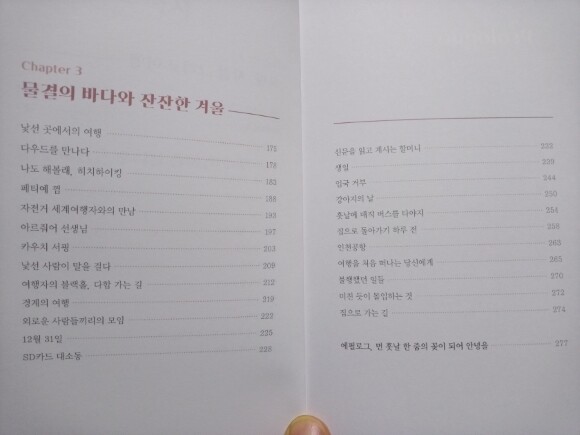 Chapter 3
물결의 바다와 잔잔한 겨울
낯선 곳에서의 여행 172
다우드를 만나다 178
나도 해볼래, 히치하이킹 182
페티예 캠 188
자전거 세계여행자와의 만남 193
아르쿼어 선생님 197
카우치 서핑 203
낯선 사람이 말을 걸다 209
여행자의 블랙홀, 다합 가는 길 212
경계의 여행 219
외로운 사람들끼리의 모임 222
12월 31일 225
SD카드 대소동 228
신문을 읽고 계시는 할머니 232
생일 239
입국 거부 244
강아지의 날 250
훗날에 대직 버스를 타야지 254
집으로 돌아가기 하루 전 258
인천공항 263
여행을 처음 떠나는 당신에게 265
불행했던 일들 270
미친 듯이 몰입하는 것 272
집으로 가는 길 274
에필로그, 먼 훗날 한 줌의 꽃이 되어 안녕을 277